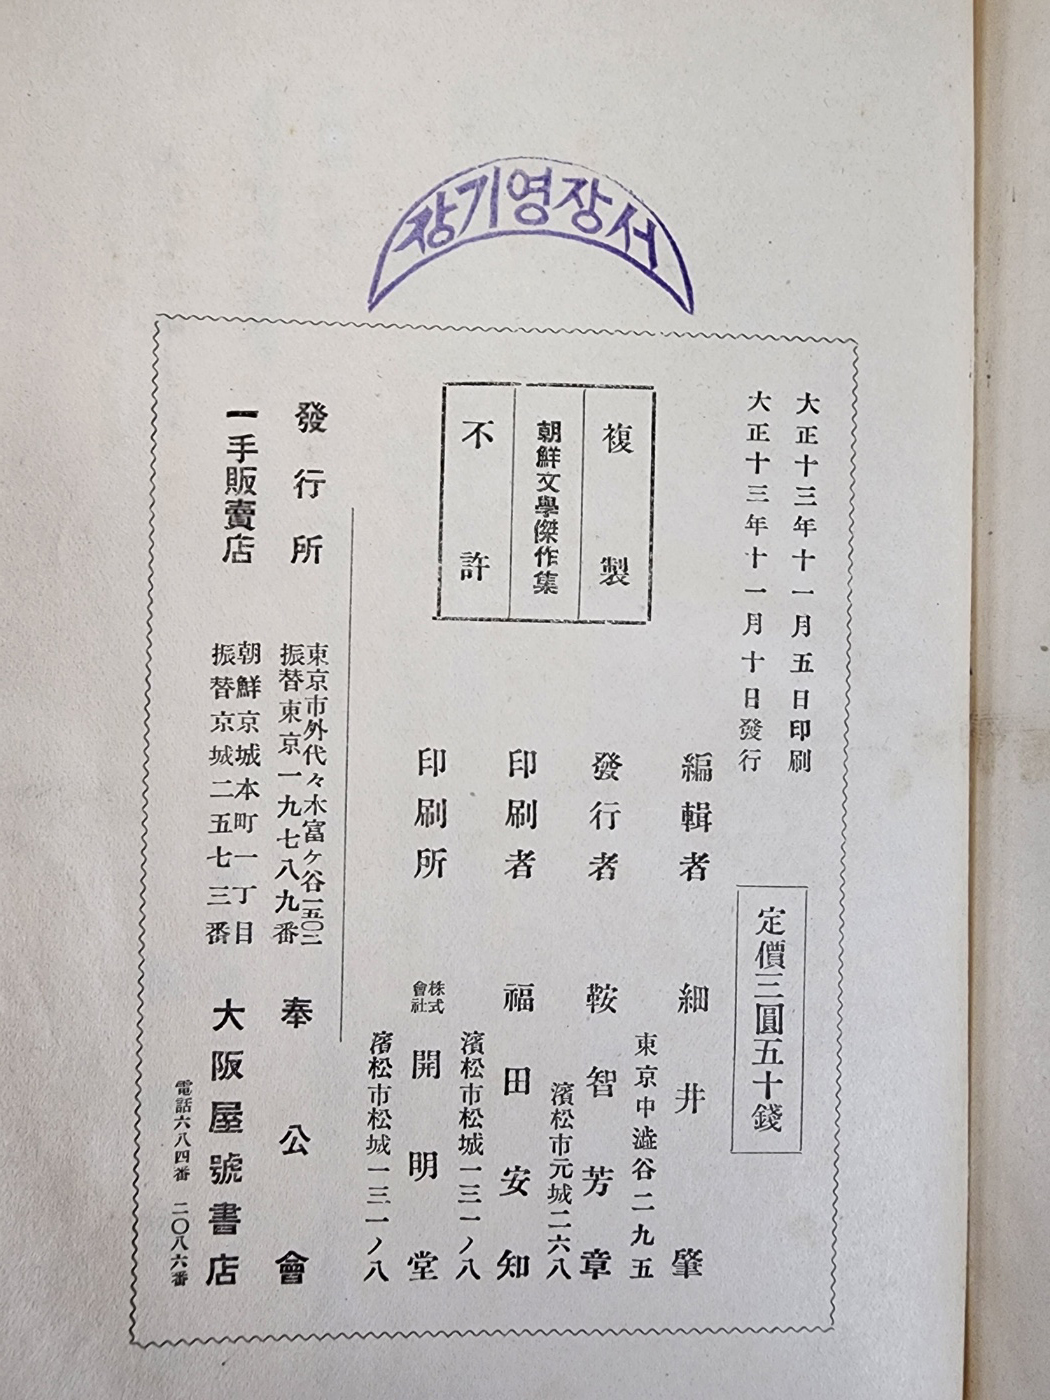 장기영장서
大正十三年十一月五日印刷
大正十三年十一月十日發行
定價三圓五十錢
複製
朝鮮文學傑作集
不許
編輯者 細井肇
東京中澁谷二九五
發行者 鞍智芳章
濱松市元城二六八
印刷者 福田安知
濱松市松城一三一ノ八
印刷所 株式會社 開明堂
濱松市松城一三一ノ八
發行所 奉公會
東京市外代々木富ヶ谷一五〇二
振替東京一九七八九番
一手販賣店 大阪屋號書店
朝鮮京城本町一丁目
振替京城二五七三番
電話六八四番 二〇八六番